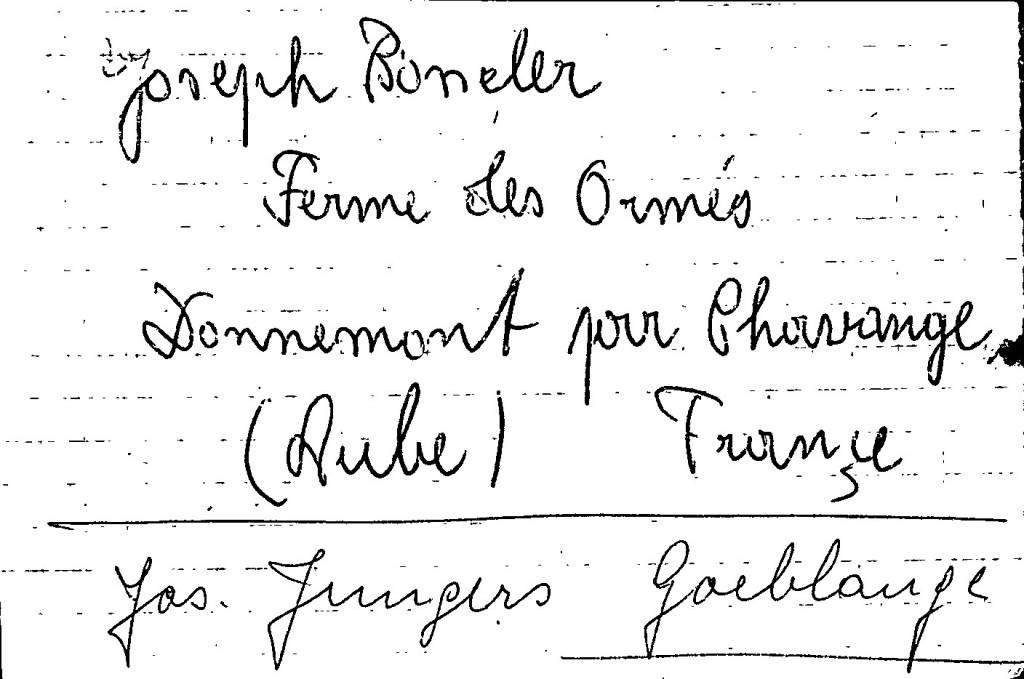 Joseph
Ferme des Ormés
Donnemont par Chavange
(Aube) Françe
Jos. Jungers Goeblange